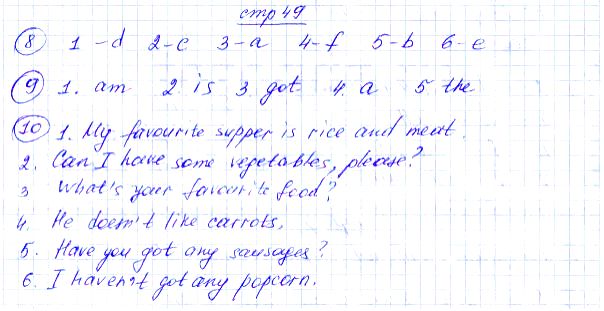 стр 49
8 1-d 2-c 3-a 4-f 5-b 6-e
9 1. am 2 is 3 got 4. a 5 the
10 1. My favourite supper is rice and meat.
2. Can I have some vegetables, please?
3 What's your favourite food?
4. He doesn't like carrots.
5. Have you got any sausages?
6. I haven't got any popcorn.